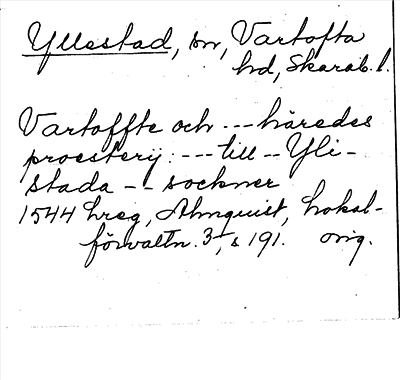 Yllestad, sn, Vartofta
hd, Skarab. l.
Vartoffte och --- häredes
proesterij: --- till -- Yli-
stada -- sockner
1544 hreg, Almquist, Lokal-
förvaltn. 3, s 191. orig.